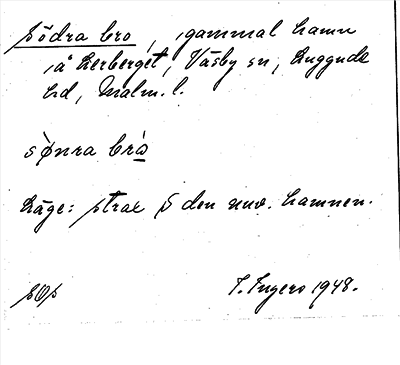 Södra bro, gammal hamn
å Lerberget, Väsby sn, Luggude
hd, Malm. l.
sønra bro
Läge: strax S den nuv. hamnen.
SOS
T. Ingers 1948.